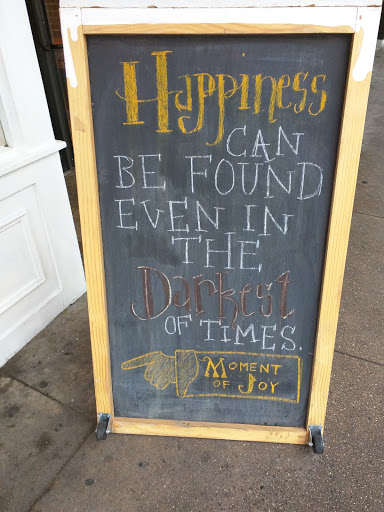 Happiness
CAN
BE FOUND
EVEN IN
THE
Darkest
OF TIMES.
MOMENT
OF JOY